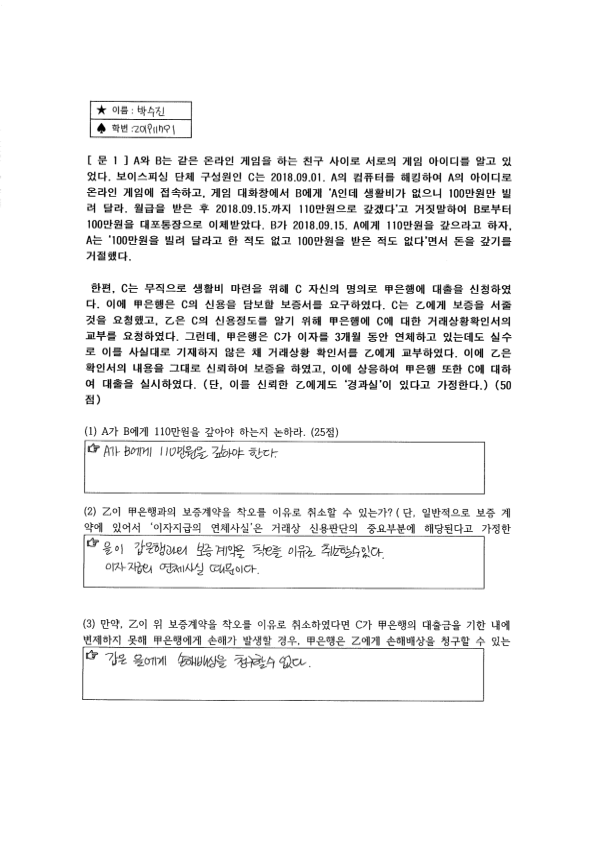 ★ 이름 : 박수진
♠ 학번 :201911791
[ 문 1 ] A와 B는 같은 온라인 게임을 하는 친구 사이로 서로의 게임 아이디를 알고 있
었다. 보이스피싱 단체 구성원인 C는 2018.09.01. A의 컴퓨터를 해킹하여 A의 아이디로
온라인 게임에 접속하고, 게임 대화창에서 B에게 ‘A인데 생활비가 없으니 100만원만 빌
려 달라. 월급을 받은 후 2018.09.15.까지 110만원으로 갚겠다’고 거짓말하여 B로부터
100만원을 대포통장으로 이체받았다. B가 2018.09.15. A에게 110만원을 갚으라고 하자,
A는 ‘100만원을 빌려 달라고 한 적도 없고 100만원을 받은 적도 없다’면서 돈을 갚기를
거절했다.
한편, C는 무직으로 생활비 마련을 위해 C 자신의 명의로 甲은행에 대출을 신청하였
다. 이에 甲은행은 C의 신용을 담보할 보증서를 요구하였다. C는 乙에게 보증을 서줄
것을 요청했고, 乙은 C의 신용정도를 알기 위해 甲은행에 C에 대한 거래상황확인서의
교부를 요청하였다. 그런데, 甲은행은 C가 이자를 3개월 동안 연체하고 있는데도 실수
로 이를 사실대로 기재하지 않은 채 거래상황 확인서를 乙에게 교부하였다. 이에 乙은
확인서의 내용을 그대로 신뢰하여 보증을 하였고, 이에 상응하여 甲은행 또한 C에 대하
여 대출을 실시하였다. (단, 이를 신뢰한 乙에게도 ‘경과실’이 있다고 가정한다.) (50
점)
(1) A가 B에게 110만원을 갚아야 하는지 논하라. (25점)
A가 B에게 110만원을 갚아야 한다.
(2) 乙이 甲은행과의 보증계약을 착오를 이유로 취소할 수 있는가? ( 단, 일반적으로 보증 계
약에 있어서 ‘이자지급의 연체사실’은 거래상 신용판단의 중요부분에 해당된다고 가정한
을이 갑은행과의 보증계약을 착오를 이유로 취소할수있다.
이자 지급의 연체사실 때문이다.
(3) 만약, 乙이 위 보증계약을 착오를 이유로 취소하였다면 C가 甲은행의 대출금을 기한 내에
변제하지 못해 甲은행에게 손해가 발생할 경우, 甲은행은 乙에게 손해배상을 청구할 수 있는
갑은 을에게 손해배상을 청구할수 없다.